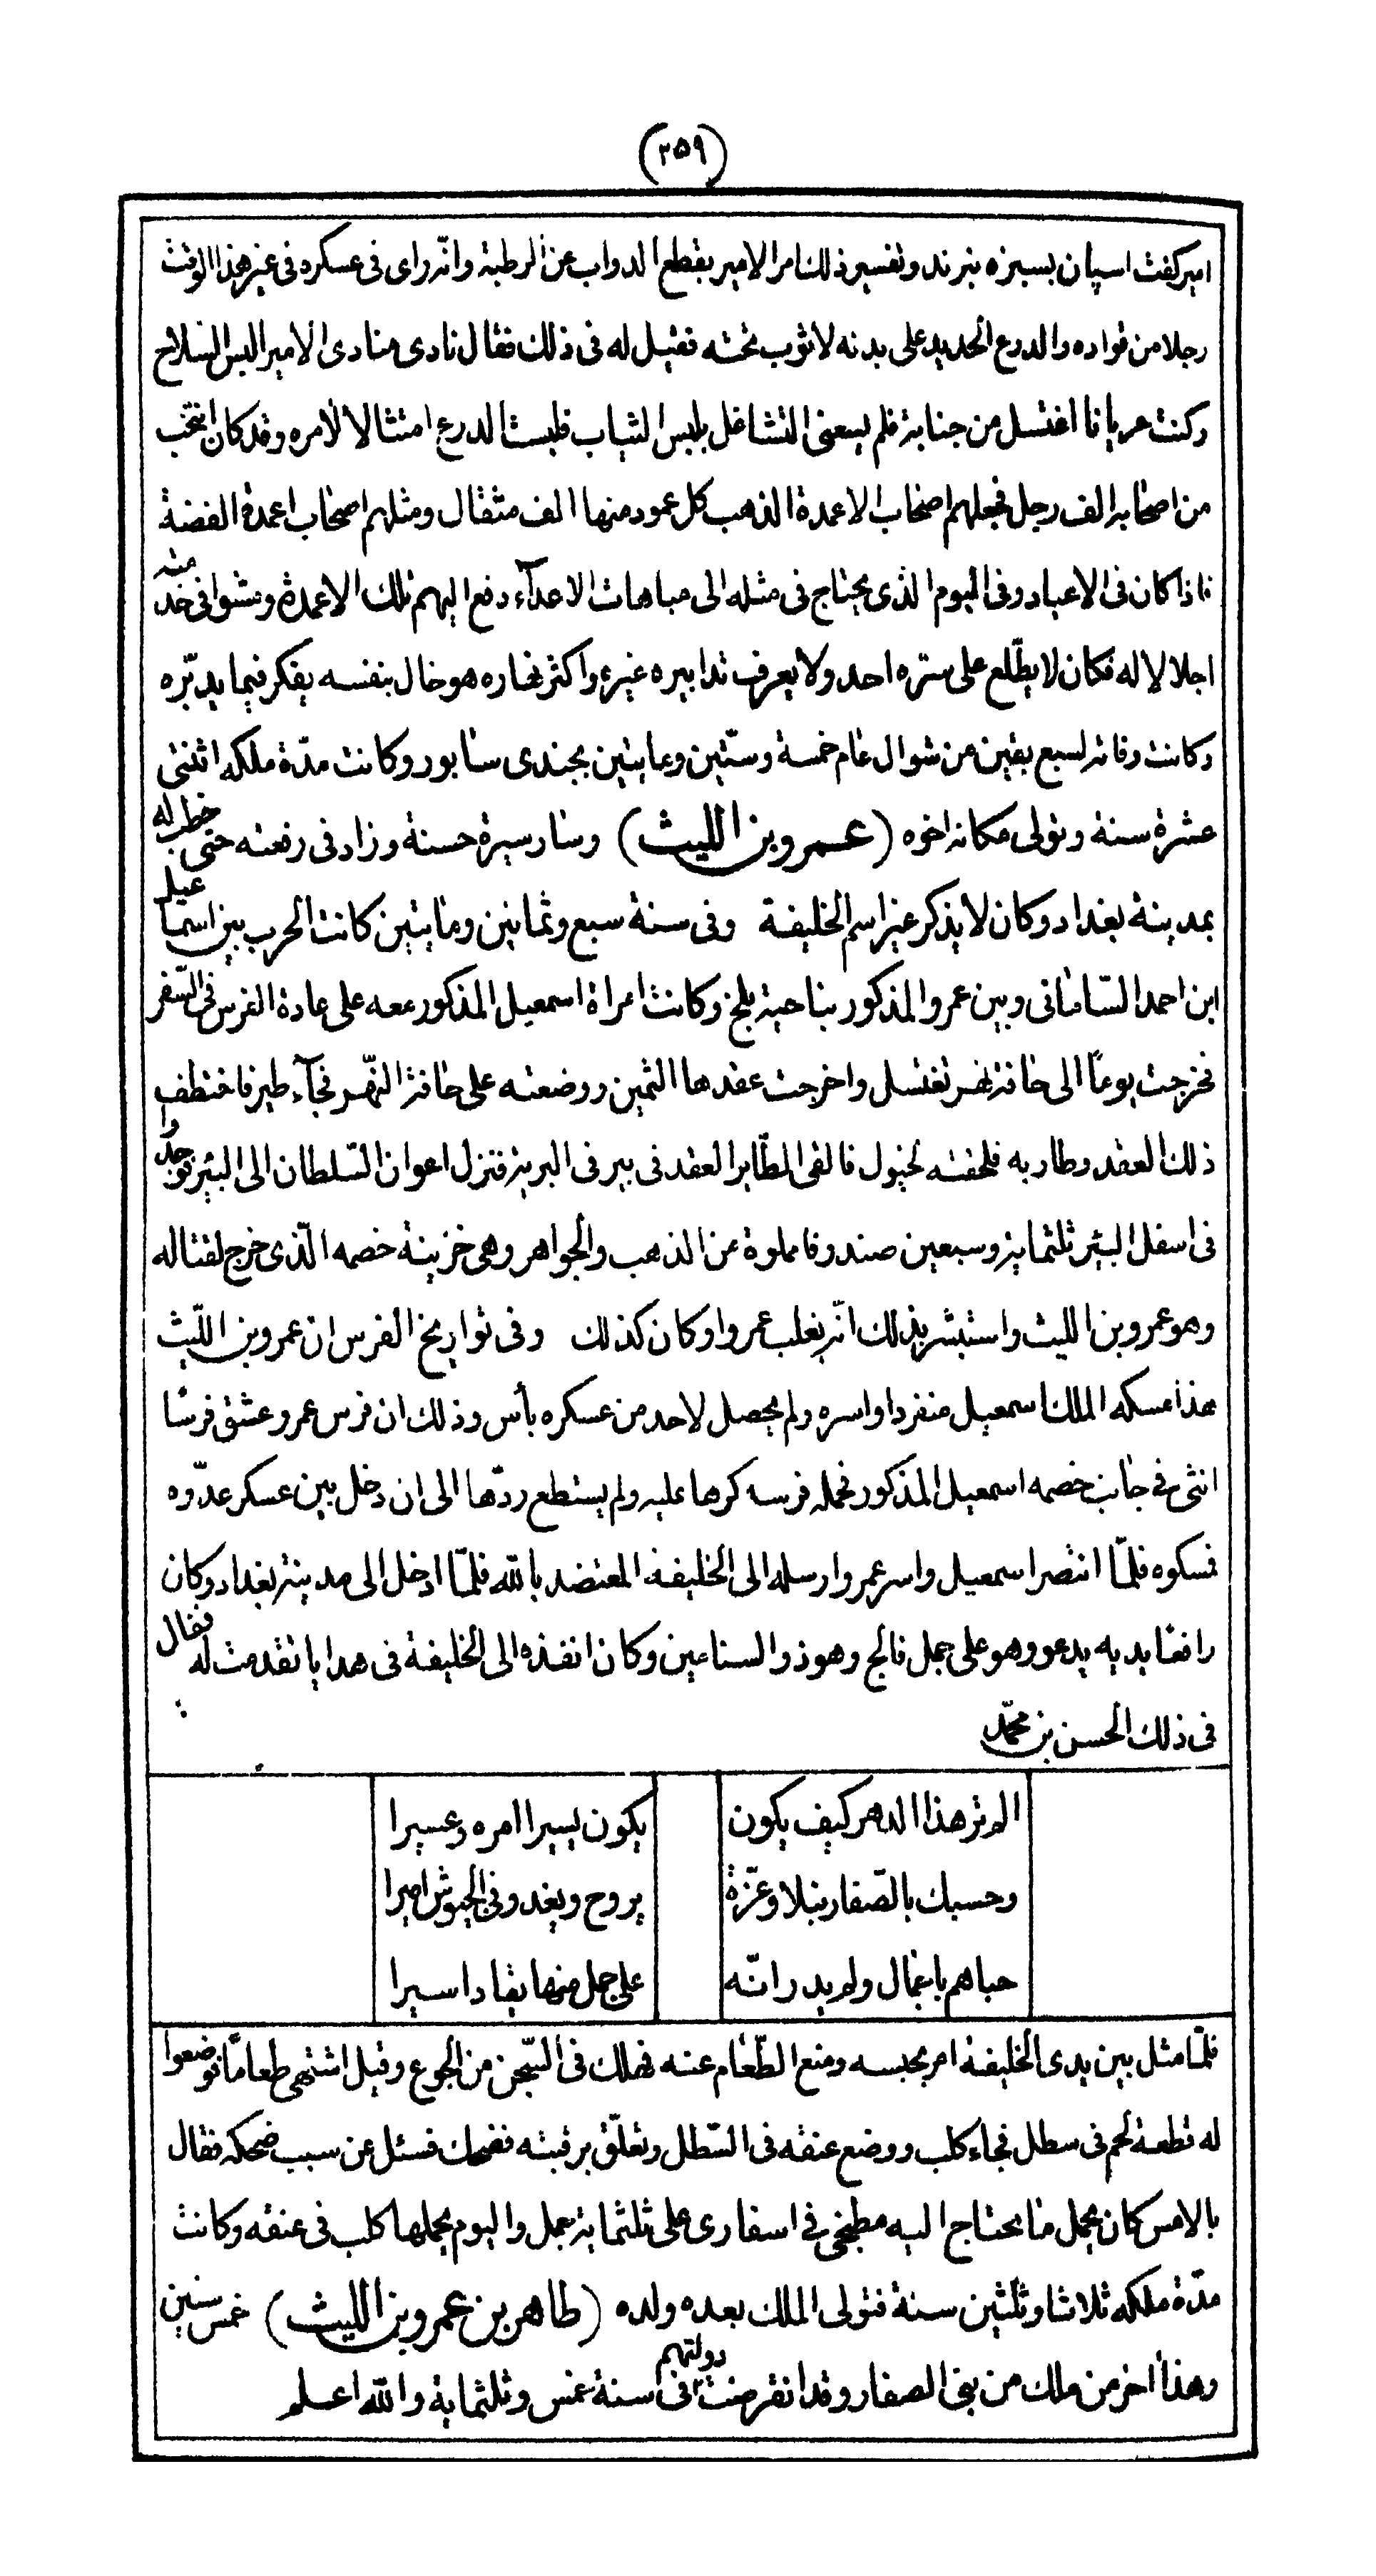 (٢٥٩)
امير كفت اسپان بسبزه نبرند وتفسير ذلك امر الامير بقطع الدواب عن الرطبة وانه راى فى عسكره فى غير هذا الوقت
رجلا من قواده والدرع الحديد على بدنه لا ثوب تحته فقيل له فى ذلك فقال نادى منادى الامير البس السلاح
وكنت عريانا اغتسل من جنابة فلم يسعنى التشاغل بلبس الثياب فلبست الدرع امتثالا لامره وقد كان انتخب
من اصحابه الف رجل فجعلهم اصحاب الاعمدة الذهب كل عمود منها الف مثقال ومثلهم اصحاب اعمدة الفضة
فاذا كان فى الاعياد وفى اليوم الذى يحتاج فى مثله الى مباهات الاعدآء دفع اليهم تلك الاعمدة ومشوا فى خدمته
اجلالا له فكان لا يطّلع على سرّه احد ولا يعرف تدابيره غيره واكثر نهاره هو خال بنفسه يفكر فيما يدبّره
وكانت وفاته لسبع بقين من شوال عام خمسة وستّين ومايتين بجندى سابور وكانت مدّة ملكه اثنتى
عشرة سنة وتولى مكانه اخوه (عمرو بن الليث) وسار سيرة حسنة وزاد فى رفعته حتى خطب له
بمدينة بغداد وكان لا يذكر غير اسم الخليفة وفى سنة سبع وثمانين ومايتين كانت الحرب بين اسماعيل
ابن احمد السّامانى وبين عمرو المذكور بناحية بلخ وكانت امراة اسمعيل المذكور معه على عادة الفرس فى السّفر
فخرجت يوماً الى حافة نهر تغتسل واخرجت عقدها الثمين ووضعته على حافة النّهر فجآء طير فاختطف
ذلك العقد وطار به فلحقته خيول فالقى الطّاير العقد فى بير فى البرية فنزل اعوان السّلطان الى البئر فوجدوا
فى اسفل البئر ثلثماية وسبعين صندوقا مملوة من الذهب والجواهر وهى خزينة خصمه الّذى خرج لقتاله
وهو عمرو بن الليث واستبشر بذلك انّه يغلب عمروا وكان كذلك وفى تواريخ الفرس ان عمرو بن اللّيث
هذا مسكه الملك اسمعيل منفردا واسره ولم يحصل لاحد من عسكره بأس وذلك ان فرس عمرو عشق فرسًا
انثى فى جانب خصمه اسمعيل المذكور فحمله فرسه كرها عليه ولم يستطع ردّها الى ان دخل بين عسكر عدّوه
فمسكوه فلمّا انتصر اسمعيل واسر عمروا ارسله الى الخليفة المعتضد بالله فلمّا ادخل الى مدينة بغداد وكان
رافعًا يديه يدعو وهو على جمل فالج وهو ذو السنامين وكان انفذه الى الخليفة فى هدايا تقدمت له فقال
فى ذلك الحسن بن محمّد
الم تر هذا الدهر كيف يكون يكون يسيرا امره وعسيرا
وحسبك بالصّفار نبلا وعزّة يروح ويغدو فى الجيوش اميرا
حباهم باجمال ولم يدر انّه على جمل منها يقاد اسيرا
فلمّا مثل بين يدى الخليفة امر بحبسه ومنع الطّعام عنه فهلك فى السّجن من الجوع وقيل اشتهى طعامًا فوضعوا
له قطعة لحم فى سطل فجاء كلب ووضع عنقه فى السّطل وتعلّق برقبته فضحك فسئل عن سبب ضحكه فقال
بالامس كان يحمل ما يحتاج اليه مطبخى فى اسفارى على ثلثماية جمل واليوم يحملها كلب فى عنقه وكانت
مدّة ملكه ثلاثا وثلثين سنة فتولى الملك بعده ولده (طاهر بن عمرو بن الليث) خمس سنين
وهذا اخر من ملك من بنى الصفار وقد انقرضت دولتهم فى سنة خمس وثلثماية والله اعلم